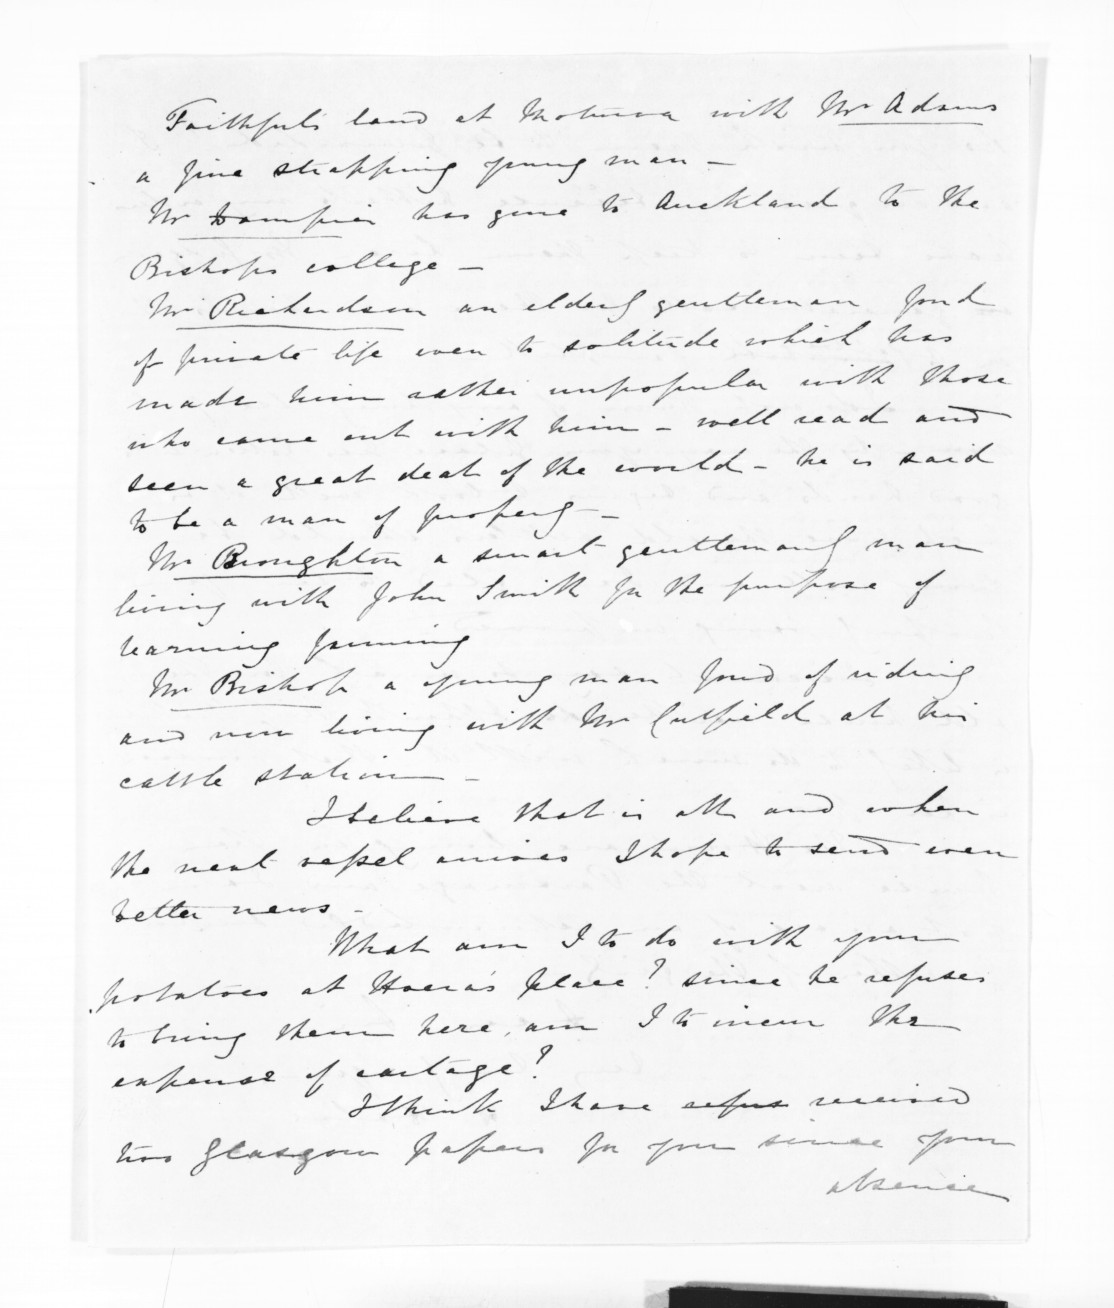 Faithful's land at Moturoa with Mr Adams
a fine strapping young man -
Mr Dampier has gone to Auckland to the
Bishops college -
Mr Richardson an elderly gentleman fond
of private life even to solitude which has
made him rather unpopular with those
who came out with him - well read and
seen a great deal of the world - he is said
to be a man of property -
Mr Broughton a smart gentlemanly man
living with John Smith for the purpose of
learning farming
Mr Bishop a young man fond of riding
and now living with Mr Cutfield at his
cattle station -
I believe that is all and when
the next vessel arrives I hope to send even
better news -
What am I to do with your
potatoes at Hoera's place? since he refuses
to bring them here, am I to incur the
expense of cartage?
I think I have received
two Glasgow papers for you since your
absence